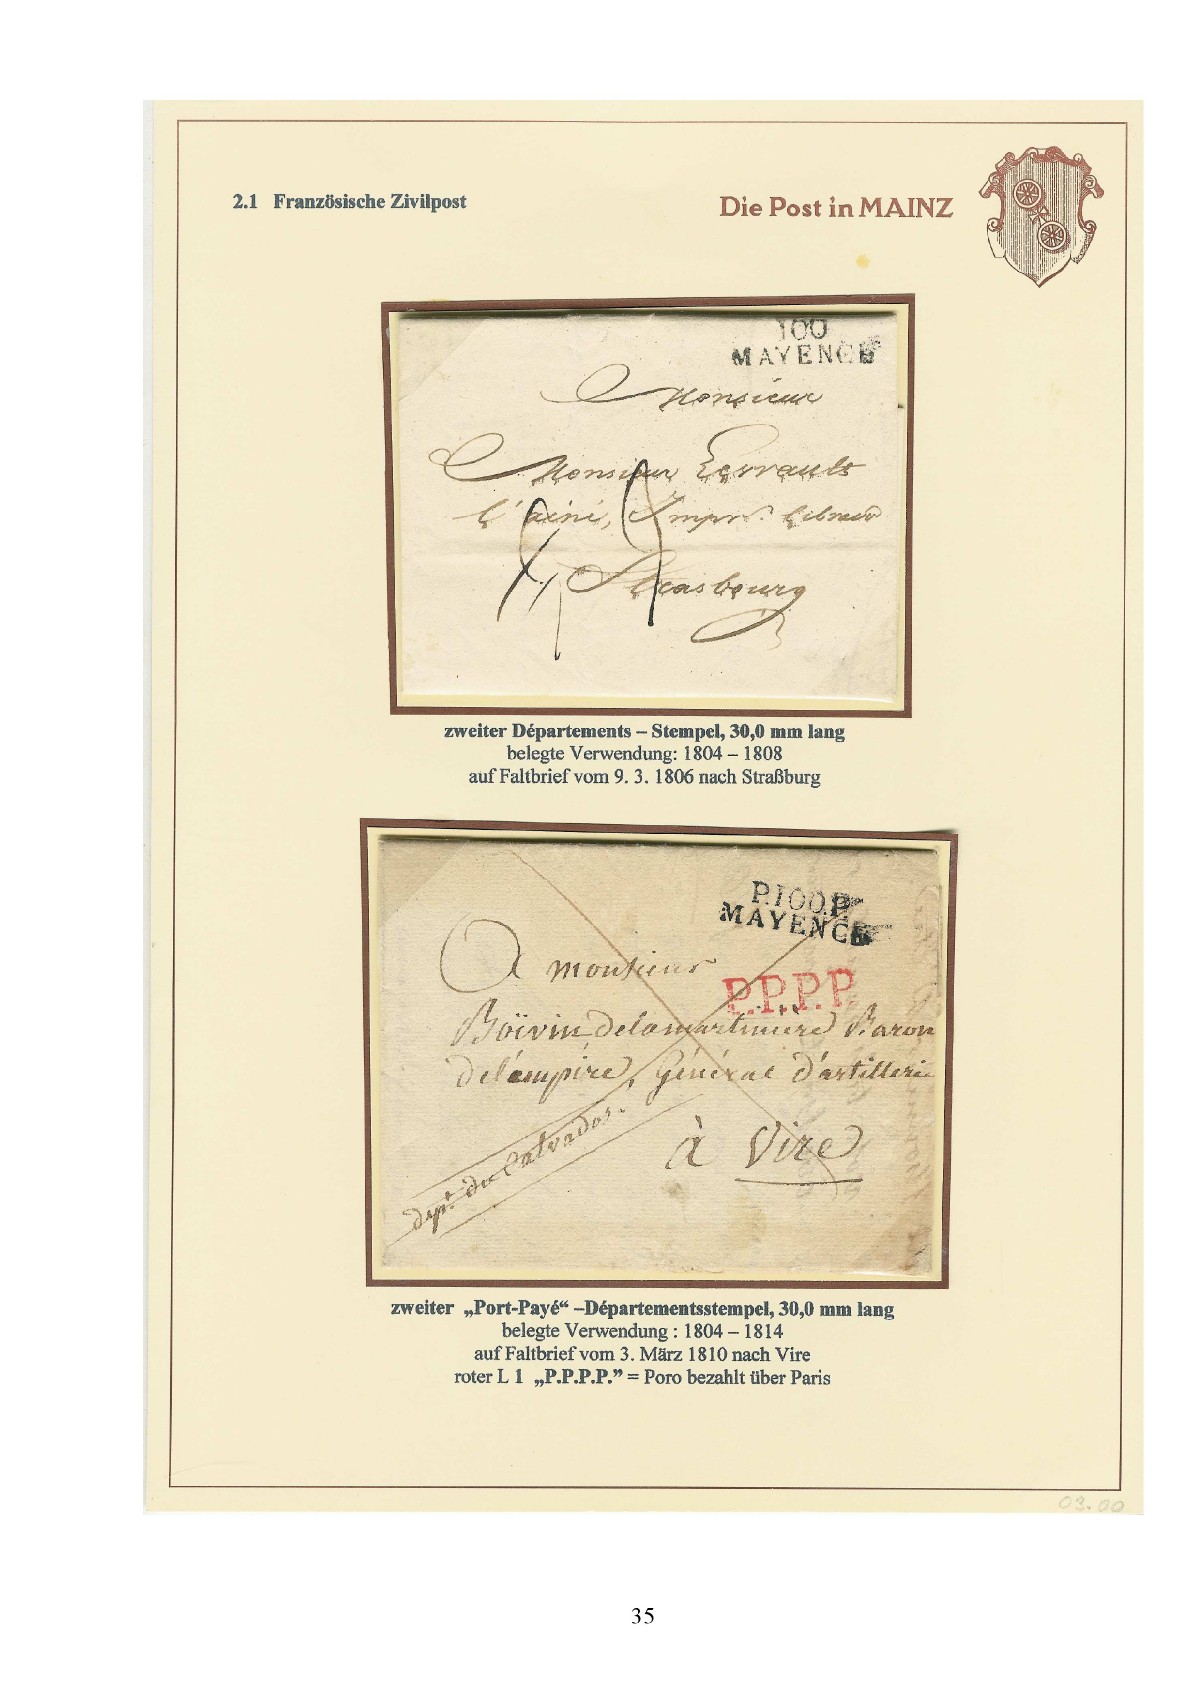 2.1 Französische Zivilpost
Die Post in MAINZ
100
MAYENCE
Monsieur
Monsieur
l'ainé, Impr.
Strasbourg
zweiter Départements – Stempel, 30,0 mm lang
belegte Verwendung: 1804 – 1808
auf Faltbrief vom 9. 3. 1806 nach Straßburg
P.100.P.
MAYENCE
A monsieur
P.P.P.P.
Boïvin delamartiniere Baron
del'empire, Général d'artillerie
à Vire
dept. du Calvados.
zweiter „Port-Payé“ –Départementsstempel, 30,0 mm lang
belegte Verwendung : 1804 – 1814
auf Faltbrief vom 3. März 1810 nach Vire
roter L 1 „P.P.P.P.” = Poro bezahlt über Paris
03.00
35